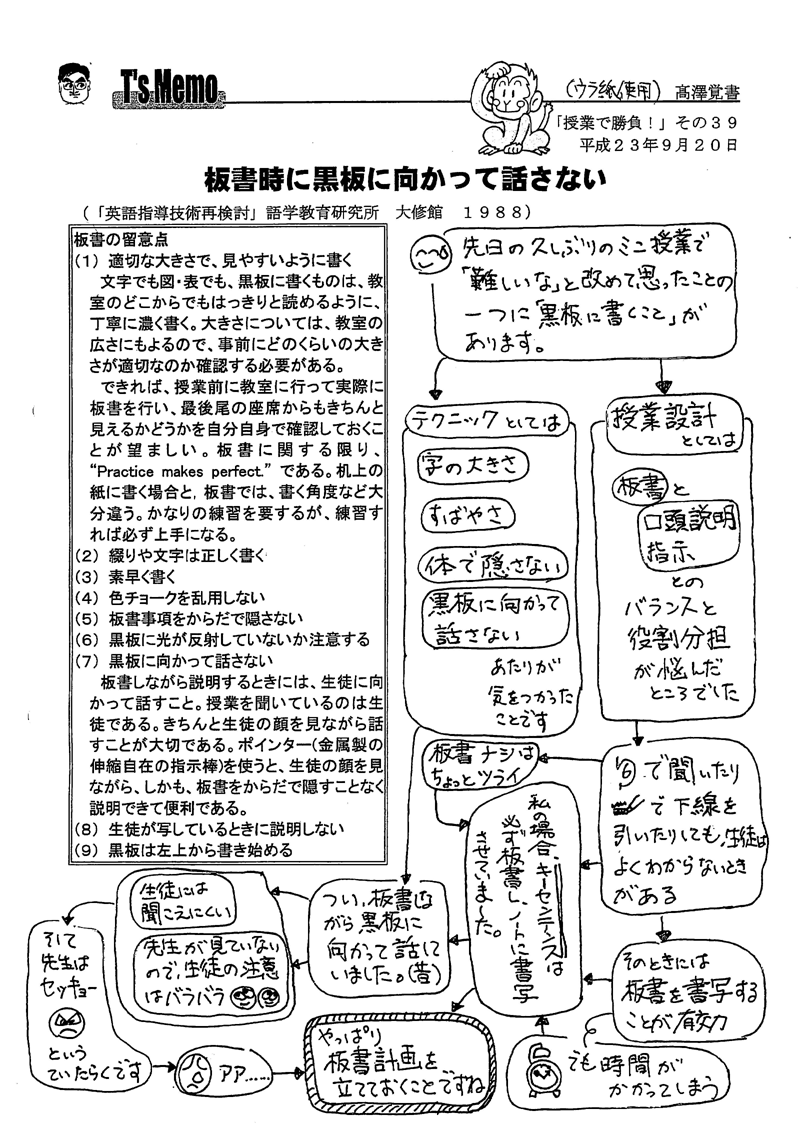 T's Memo
（ウラ紙使用）高澤覚書
「授業で勝負！」その３９
平成２３年９月２０日
板書時に黒板に向かって話さない
（「英語指導技術再検討」語学教育研究所　大修館　１９８８）
板書の留意点
（1）適切な大きさで、見やすいように書く
文字でも図・表でも、黒板に書くものは、教
室のどこからでもはっきりと読めるように、
丁寧に濃く書く。大きさについては、教室の
広さにもよるので、事前にどのくらいの大き
さが適切なのか確認する必要がある。
できれば、授業前に教室に行って実際に
板書を行い、最後尾の座席からもきちんと
見えるかどうかを自分自身で確認しておくこ
とが望ましい。板書に関する限り、
“Practice makes perfect.” である。机上の
紙に書く場合と, 板書では、書く角度など大
分違う。かなりの練習を要するが、練習す
れば必ず上手になる。
（2）綴りや文字は正しく書く
（3）素早く書く
（4）色チョークを乱用しない
（5）板書事項をからだで隠さない
（6）黒板に光が反射していないか注意する
（7）黒板に向かって話さない
板書しながら説明するときには、生徒に向
かって話すこと。授業を聞いているのは生
徒である。きちんと生徒の顔を見ながら話
すことが大切である。ポインター（金属製の
伸縮自在の指示棒）を使うと、生徒の顔を見
ながら、しかも、板書をからだで隠すことなく
説明できて便利である。
（8）生徒が写しているときに説明しない
（9）黒板は左上から書き始める
先日の久しぶりのミニ授業で
「難しいな」と改めて思ったことの
一つに「黒板に書くこと」が
あります。
テクニックとしては
字の大きさ
すばやさ
体で隠さない
黒板に向かって
話さない
あたりが
気をつかった
ことです
授業設計
としては
板書と
口頭説明
指示
との
バランスと
役割分担
が悩んだ
ところでした
板書ナシは
ちょっとツライ
で聞いたり
で下線を
引いたりしても、生徒は
よくわからないとき
がある
私の場合、キーセンテンスは
必ず板書し、ノートに書写
させていました。
そのときには
板書を書写する
ことが有効
でも時間が
かかってしまう
つい、板書しな
がら黒板に
向かって話して
いました。（昔）
生徒には
聞こえにくい
先生が見ていない
ので、生徒の注意
はバラバラ
そして
先生は
セッキョー
という
ていたらくです
アア……
やっぱり
板書計画を
立てておくことですね